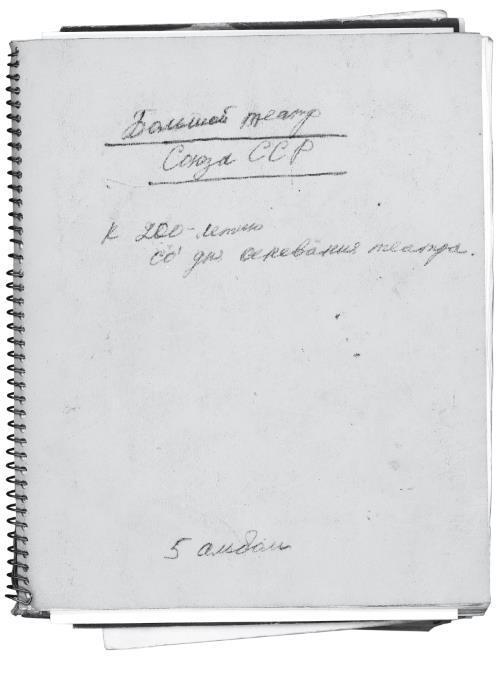 Большой театр
Союза ССР
К 200-летию
со дня основания театра.
5 альбом